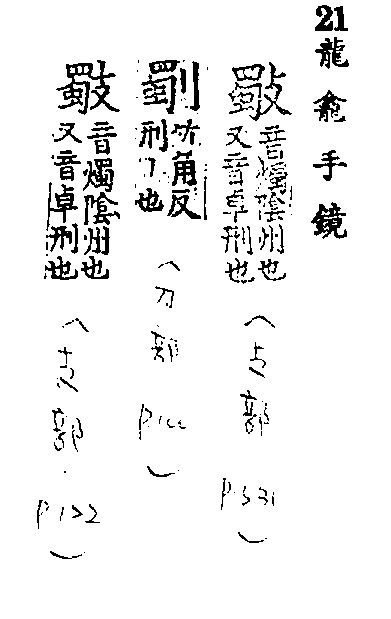 21 龍龕手鏡
斀
音燭陰州也
又音卓刑也
（攴部 P.531）
㔉
竹角反
刑 也
（刀部
音燭陰州也
又音卓刑也
（支部. P.122）